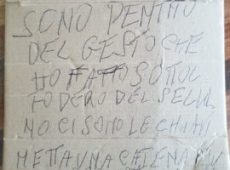 SONO PENTITO
DEL GESTO CHE
HO FATTO SOTTO
DEL SELL
NO CI SONO LE CHIAVI
METTA UNA CATENA